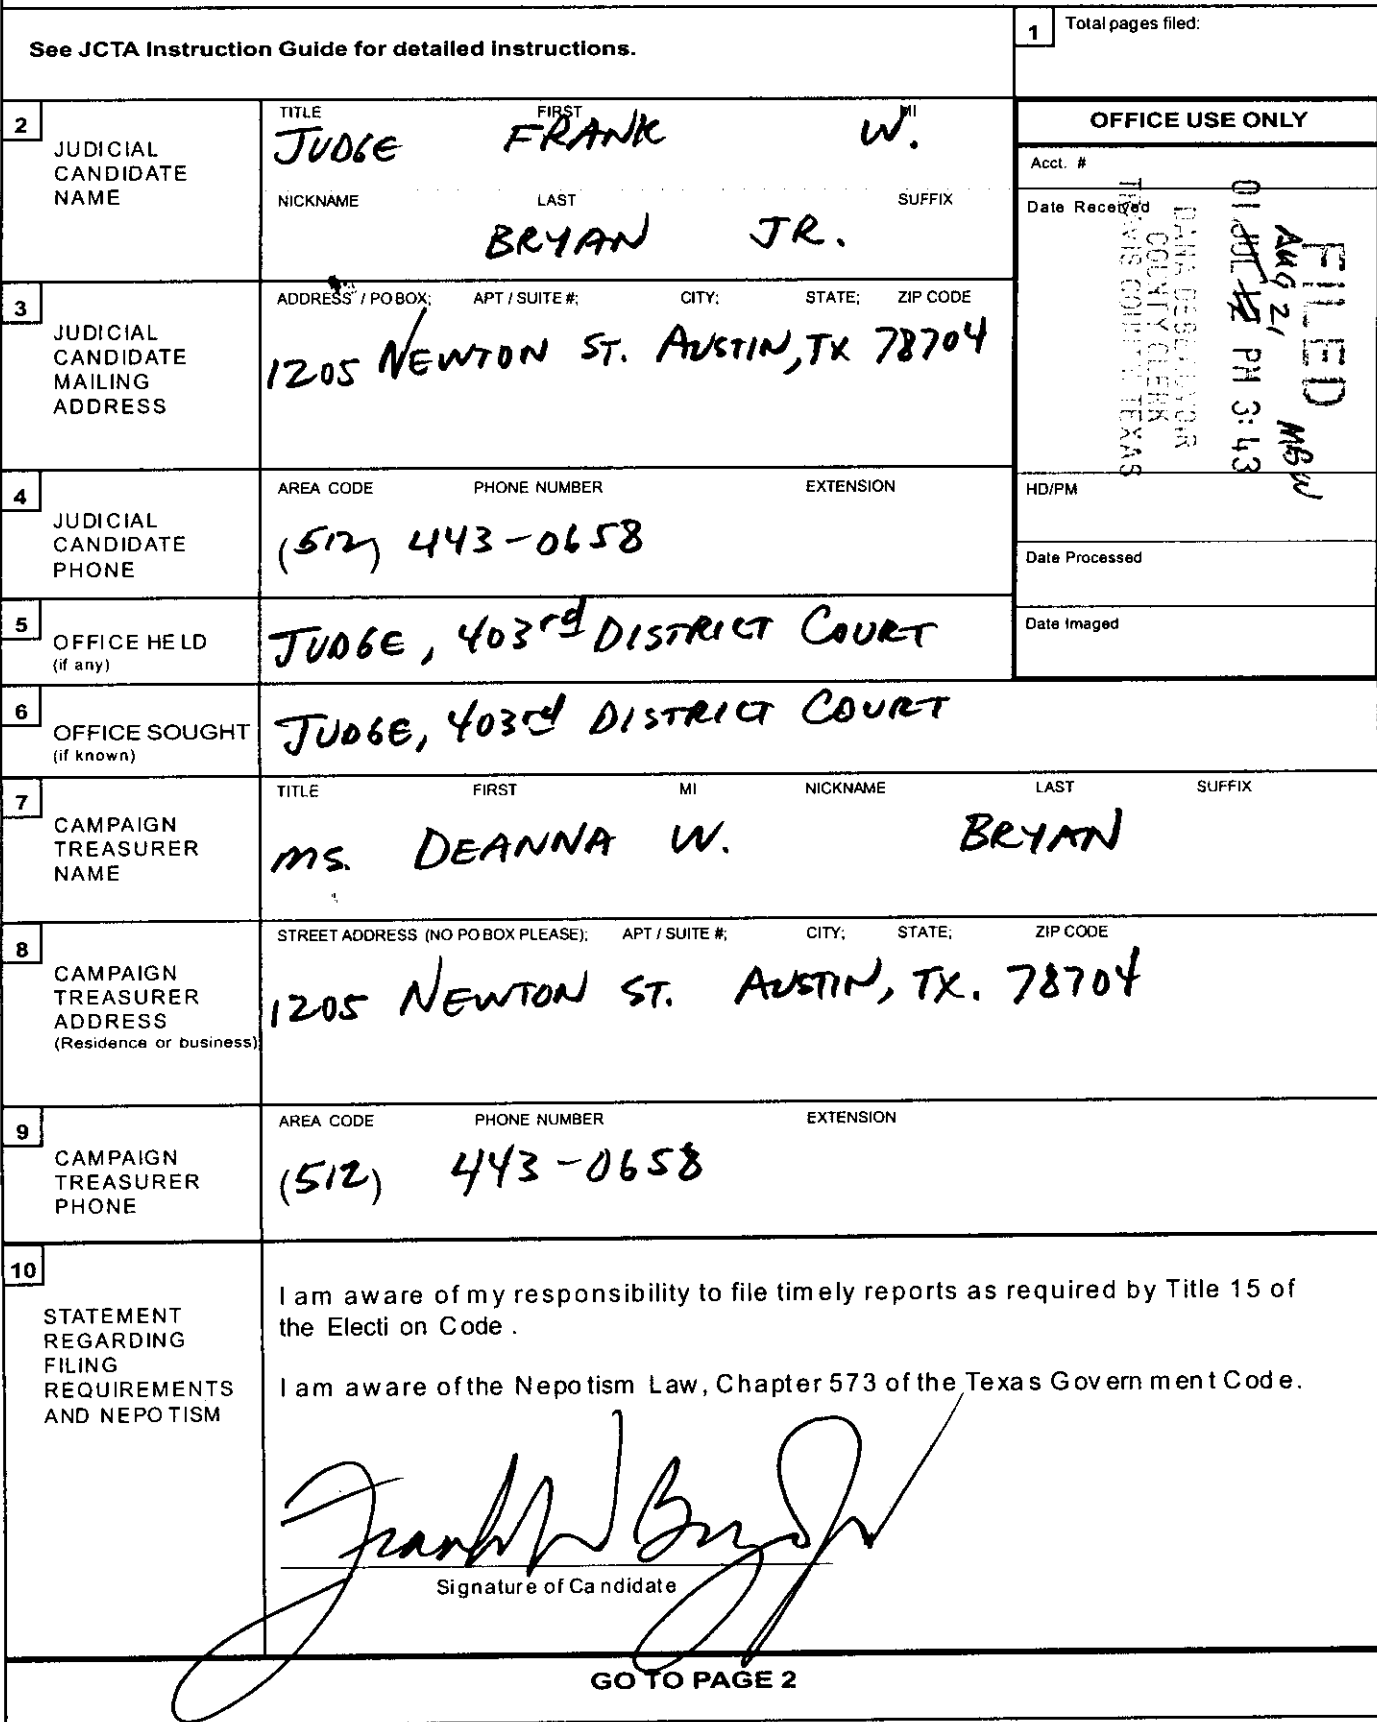 See JCTA Instruction Guide for detailed instructions.
1 Total pages filed:
2 JUDICIAL CANDIDATE NAME
TITLE FIRST MI
JUDGE FRANK W.
NICKNAME LAST SUFFIX
BRYAN JR.
OFFICE USE ONLY
Acct. #
Date Received
FILED
AUG 21 MBW
01 JUL 12 PM 3:43
COUNTY CLERK
TRAVIS COUNTY TEXAS
HD/PM
Date Processed
Date Imaged
3 JUDICIAL CANDIDATE MAILING ADDRESS
ADDRESS / PO BOX; APT / SUITE #; CITY; STATE; ZIP CODE
1205 NEWTON ST. AUSTIN, TX 78704
4 JUDICIAL CANDIDATE PHONE
AREA CODE PHONE NUMBER EXTENSION
(512) 443-0658
5 OFFICE HELD
(if any)
JUDGE, 403rd DISTRICT COURT
6 OFFICE SOUGHT
(if known)
JUDGE, 403rd DISTRICT COURT
7 CAMPAIGN TREASURER NAME
TITLE FIRST MI NICKNAME LAST SUFFIX
MS. DEANNA W. BRYAN
8 CAMPAIGN TREASURER ADDRESS
(Residence or business)
STREET ADDRESS (NO PO BOX PLEASE); APT / SUITE #; CITY; STATE; ZIP CODE
1205 NEWTON ST. AUSTIN, TX. 78704
9 CAMPAIGN TREASURER PHONE
AREA CODE PHONE NUMBER EXTENSION
(512) 443-0658
10 STATEMENT REGARDING FILING REQUIREMENTS AND NEPOTISM
I am aware of my responsibility to file timely reports as required by Title 15 of
the Election Code.
I am aware of the Nepotism Law, Chapter 573 of the Texas Government Code.
Frank W Bryan Jr
Signature of Candidate
GO TO PAGE 2